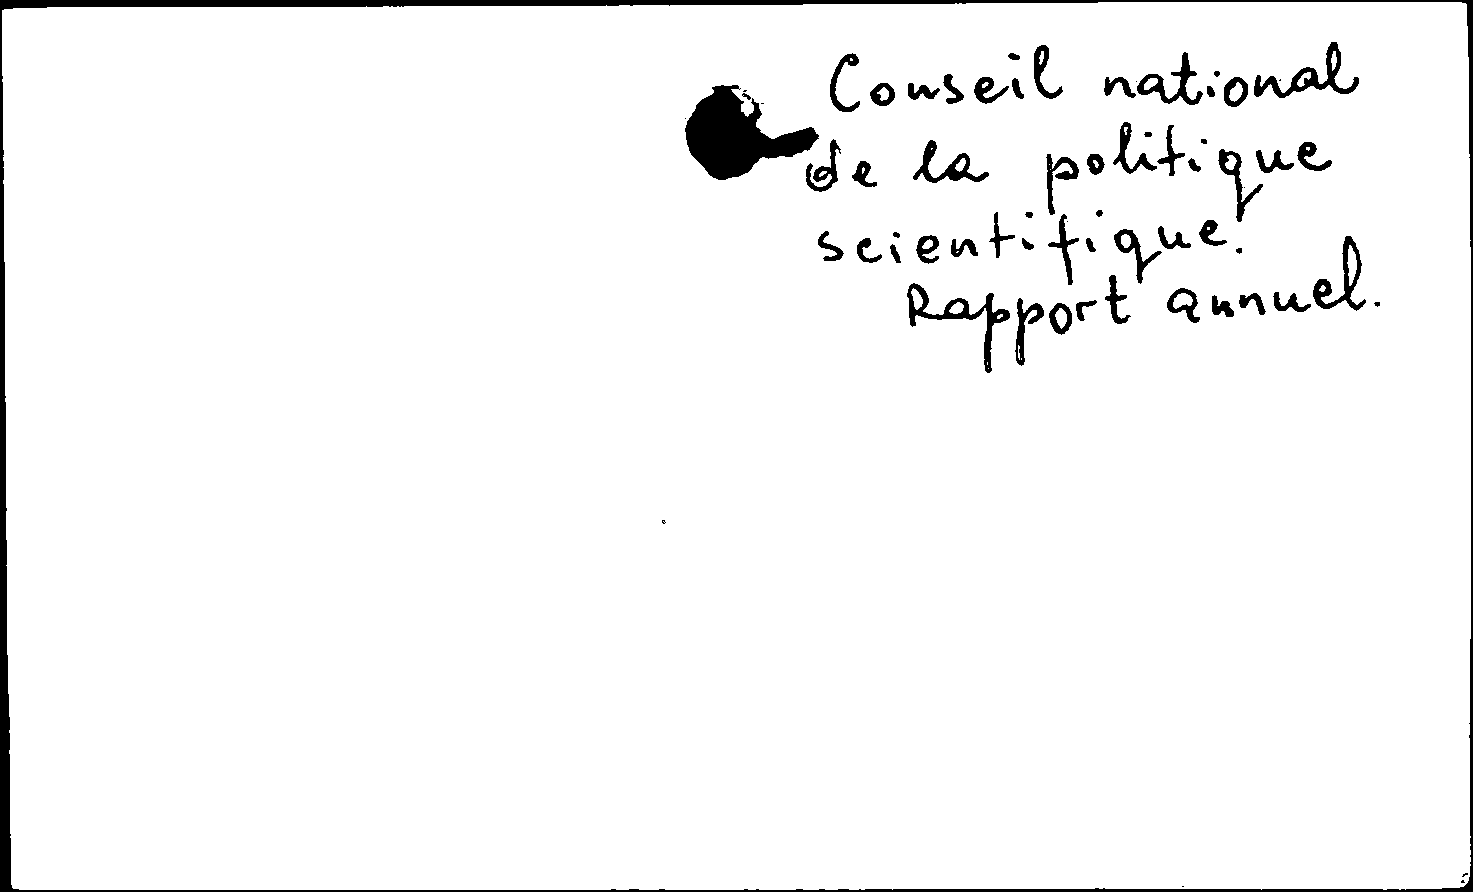 Conseil national
de la politique
scientifique.
Rapport annuel.